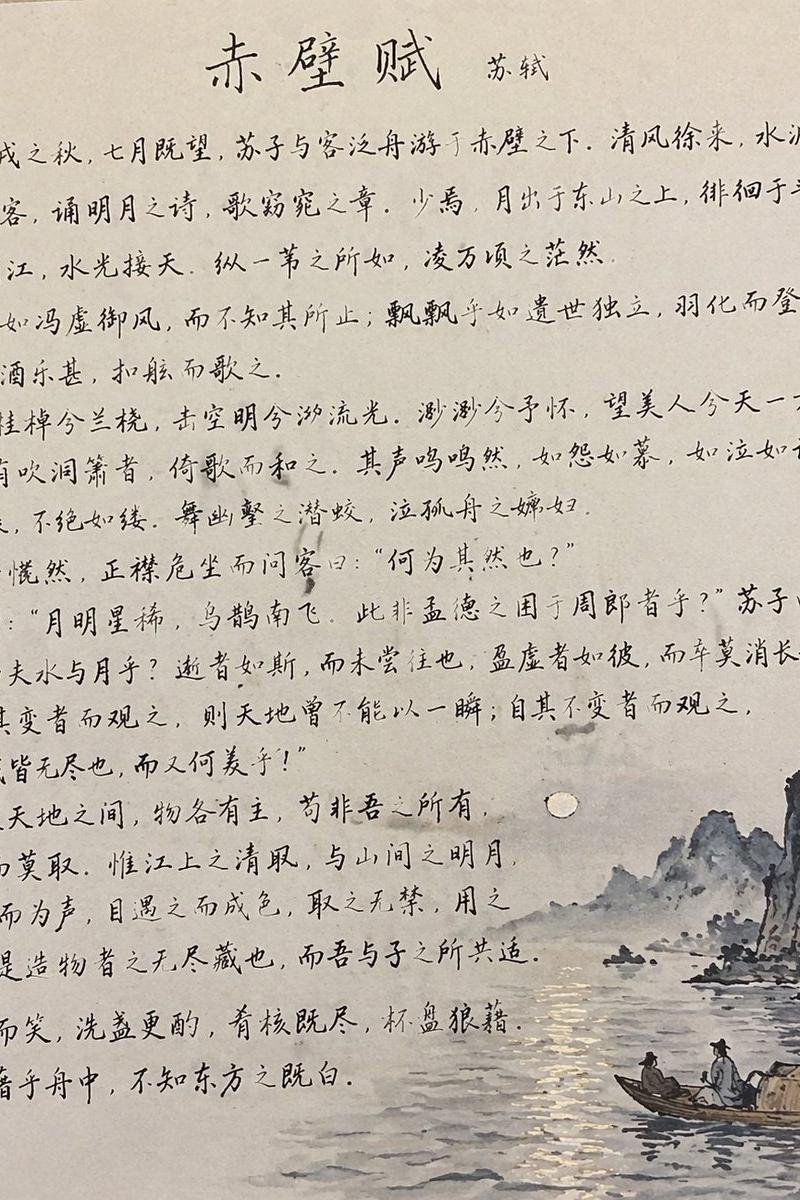 赤壁赋 苏轼
戌之秋,七月既望,苏子与客泛舟游于赤壁之下.清风徐来,水波
客,诵明月之诗,歌窈窕之章.少焉,月出于东山之上,徘徊于斗
江,水光接天.纵一苇之所如,凌万顷之茫然.
如冯虚御风,而不知其所止;飘飘乎如遗世独立,羽化而登
酒乐甚,扣舷而歌之.
桂棹兮兰桡,击空明兮泝流光.渺渺兮予怀,望美人兮天一方
有吹洞箫者,倚歌而和之.其声呜呜然,如怨如慕,如泣如诉
,不绝如缕.舞幽壑之潜蛟,泣孤舟之嫠妇.
慌然,正襟危坐而问客曰:“何为其然也?”
:“月明星稀,乌鹊南飞.此非孟德之困于周郎者乎?”苏子曰
夫水与月乎?逝者如斯,而未尝往也,盈虚者如彼,而卒莫消长
其变者而观之,则天地曾不能以一瞬;自其不变者而观之,
我皆无尽也,而又何羡乎!”
天地之间,物各有主,苟非吾之所有,
而莫取.惟江上之清取,与山间之明月,
而为声,目遇之而成色,取之无禁,用之
是造物者之无尽藏也,而吾与子之所共适.
而笑,洗盏更酌,肴核既尽,杯盘狼藉.
藉乎舟中,不知东方之既白.